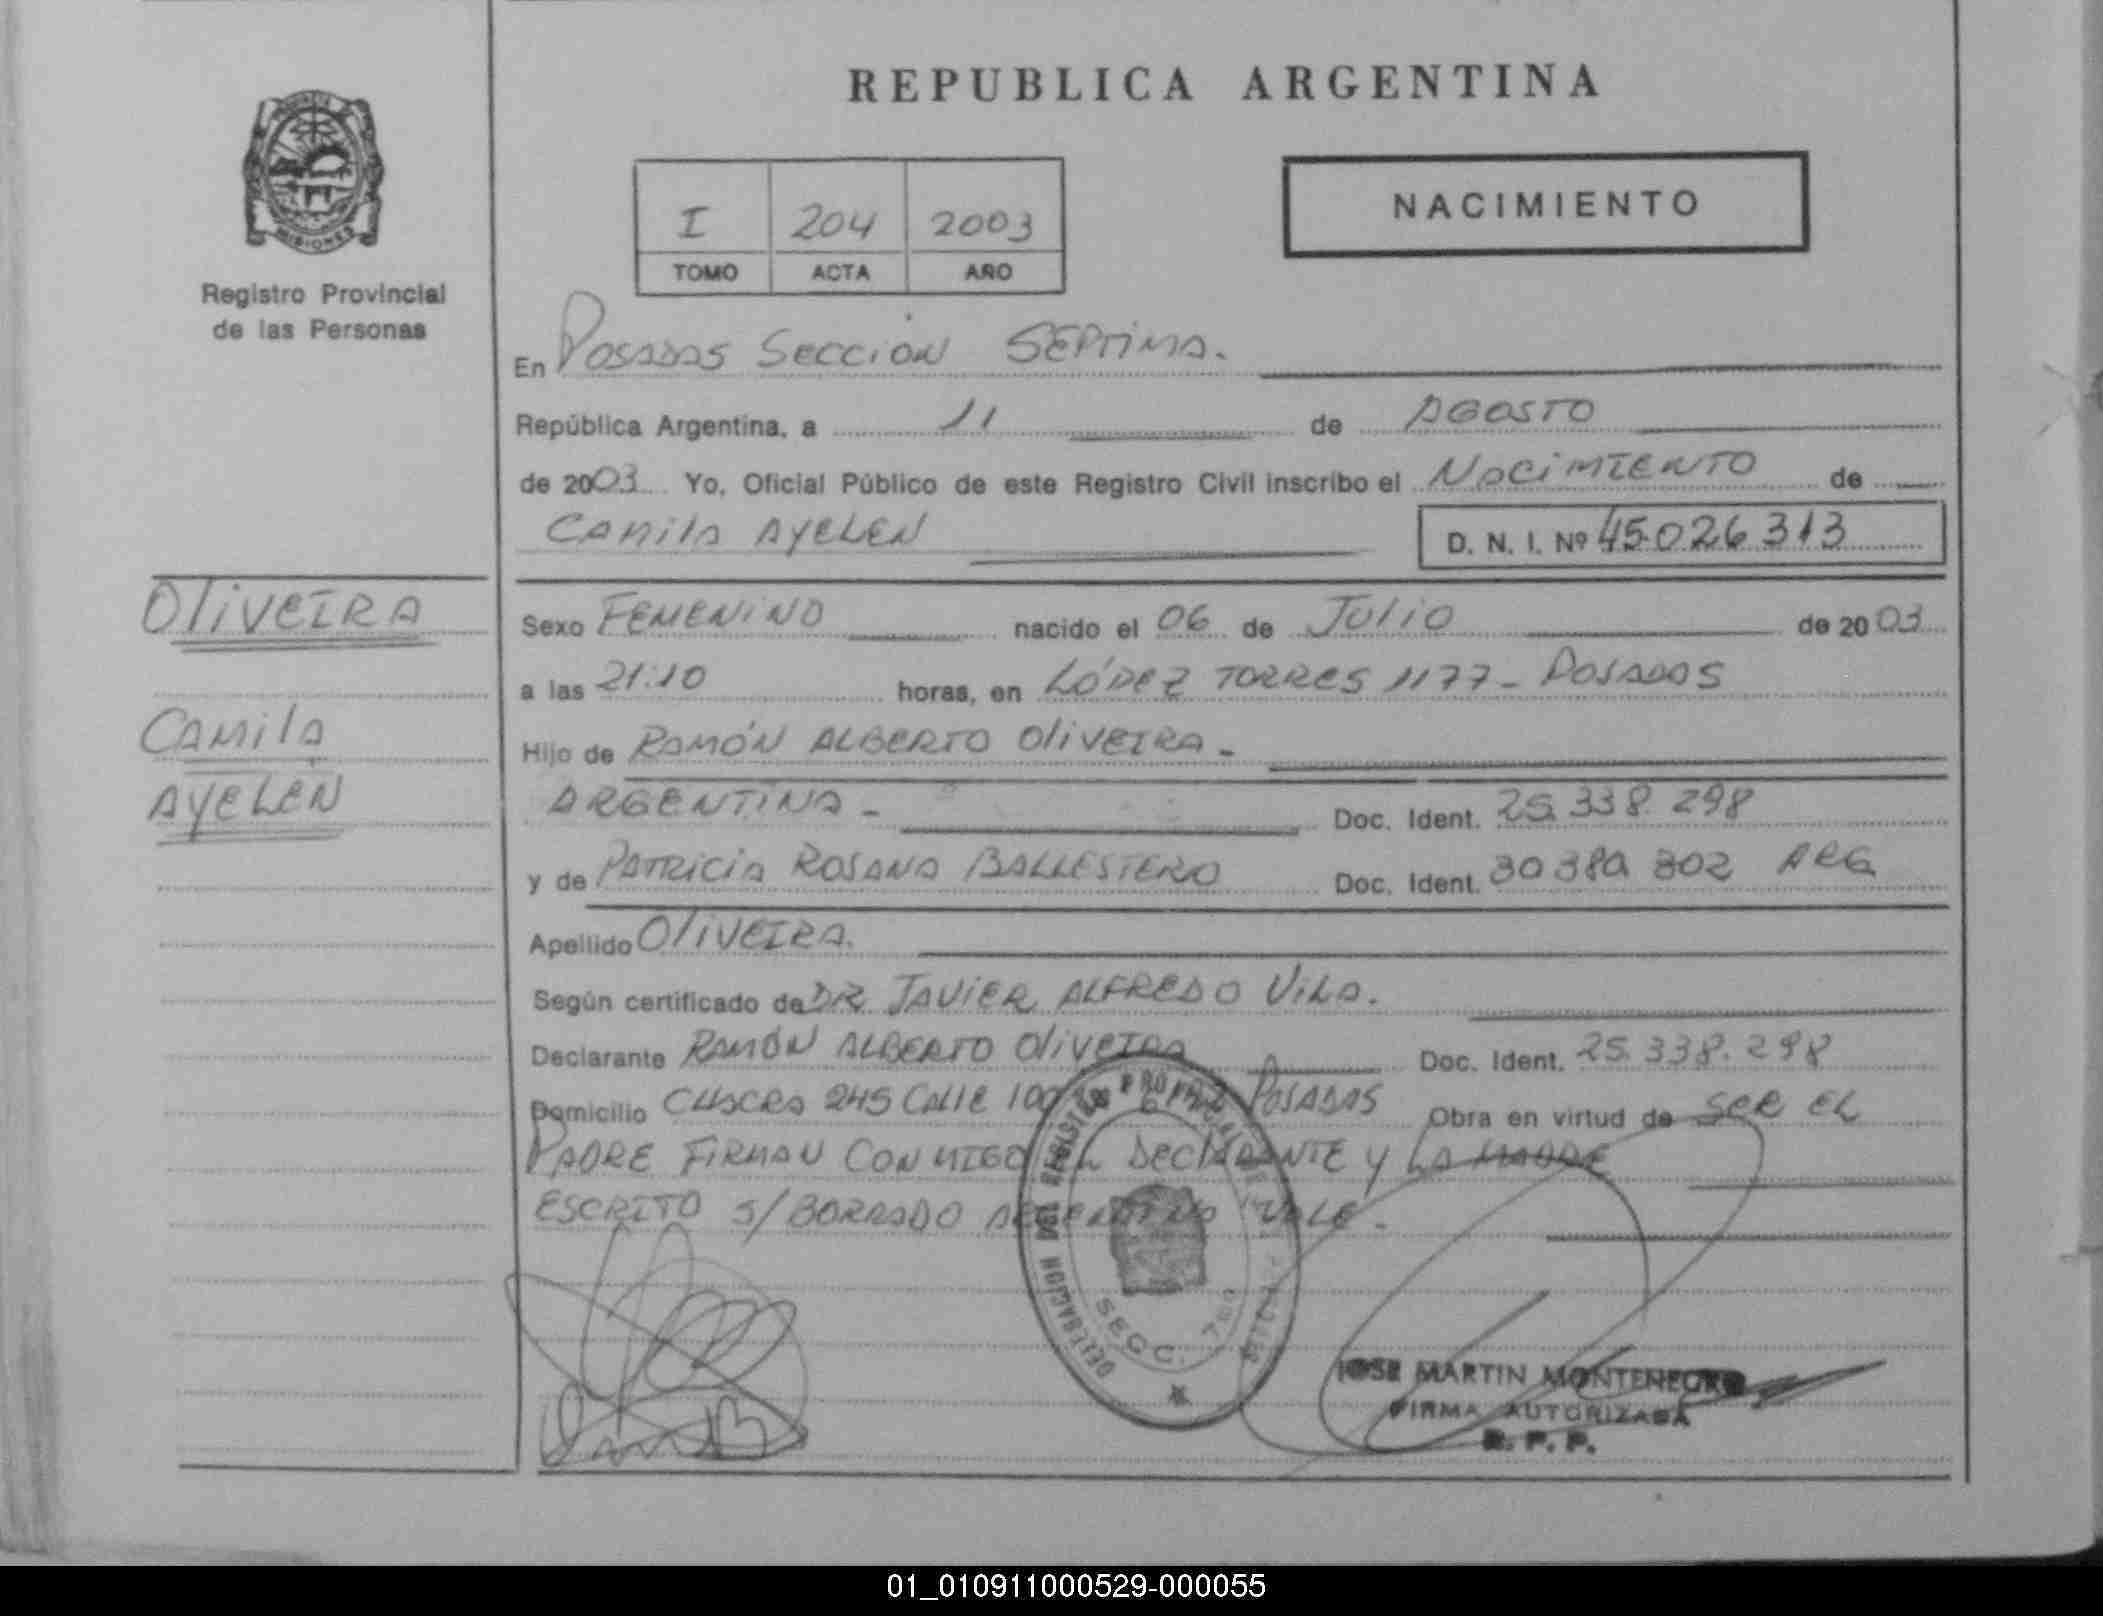 REPUBLICA ARGENTINA
MISIONES
Registro Provincial
de las Personas
I 204 2003
TOMO ACTA AÑO
NACIMIENTO
En POSADAS SECCION SEPTIMA.
República Argentina, a 11 de AGOSTO
de 2003 Yo, Oficial Público de este Registro Civil inscribo el NACIMIENTO de
CAMILA AYELEN D. N. I. Nº 45.026.313
OLIVEIRA
CAMILA
AYELÉN
Sexo FEMENINO nacido el 06 de JULIO de 2003
a las 21:10 horas, en LÓPEZ TORRES 1177 - POSADAS
Hijo de RAMÓN ALBERTO OLIVEIRA -
ARGENTINA - Doc. Ident. 25.338.298
y de PATRICIA ROSANA BALLESTERO Doc. Ident. 30 380 302 ARG
Apellido OLIVEIRA.
Según certificado de DR. JAVIER ALFREDO VILA.
Declarante RAMÓN ALBERTO OLIVEIRA Doc. Ident. 25.338.298
Domicilio 245 CALLE POSADAS Obra en virtud de SER EL
PADRE FIRMAN CONMIGO EL DECLARANTE Y LA MADRE
ESCRITO S/BORRADO ARGENTINA VALE -
DELEGACION DEL REGISTRO PROVINCIAL DE
SECC. 7ma
JOSE MARTIN MONTENEGRO
FIRMA AUTORIZADA
R. P. P.
01_010911000529-000055